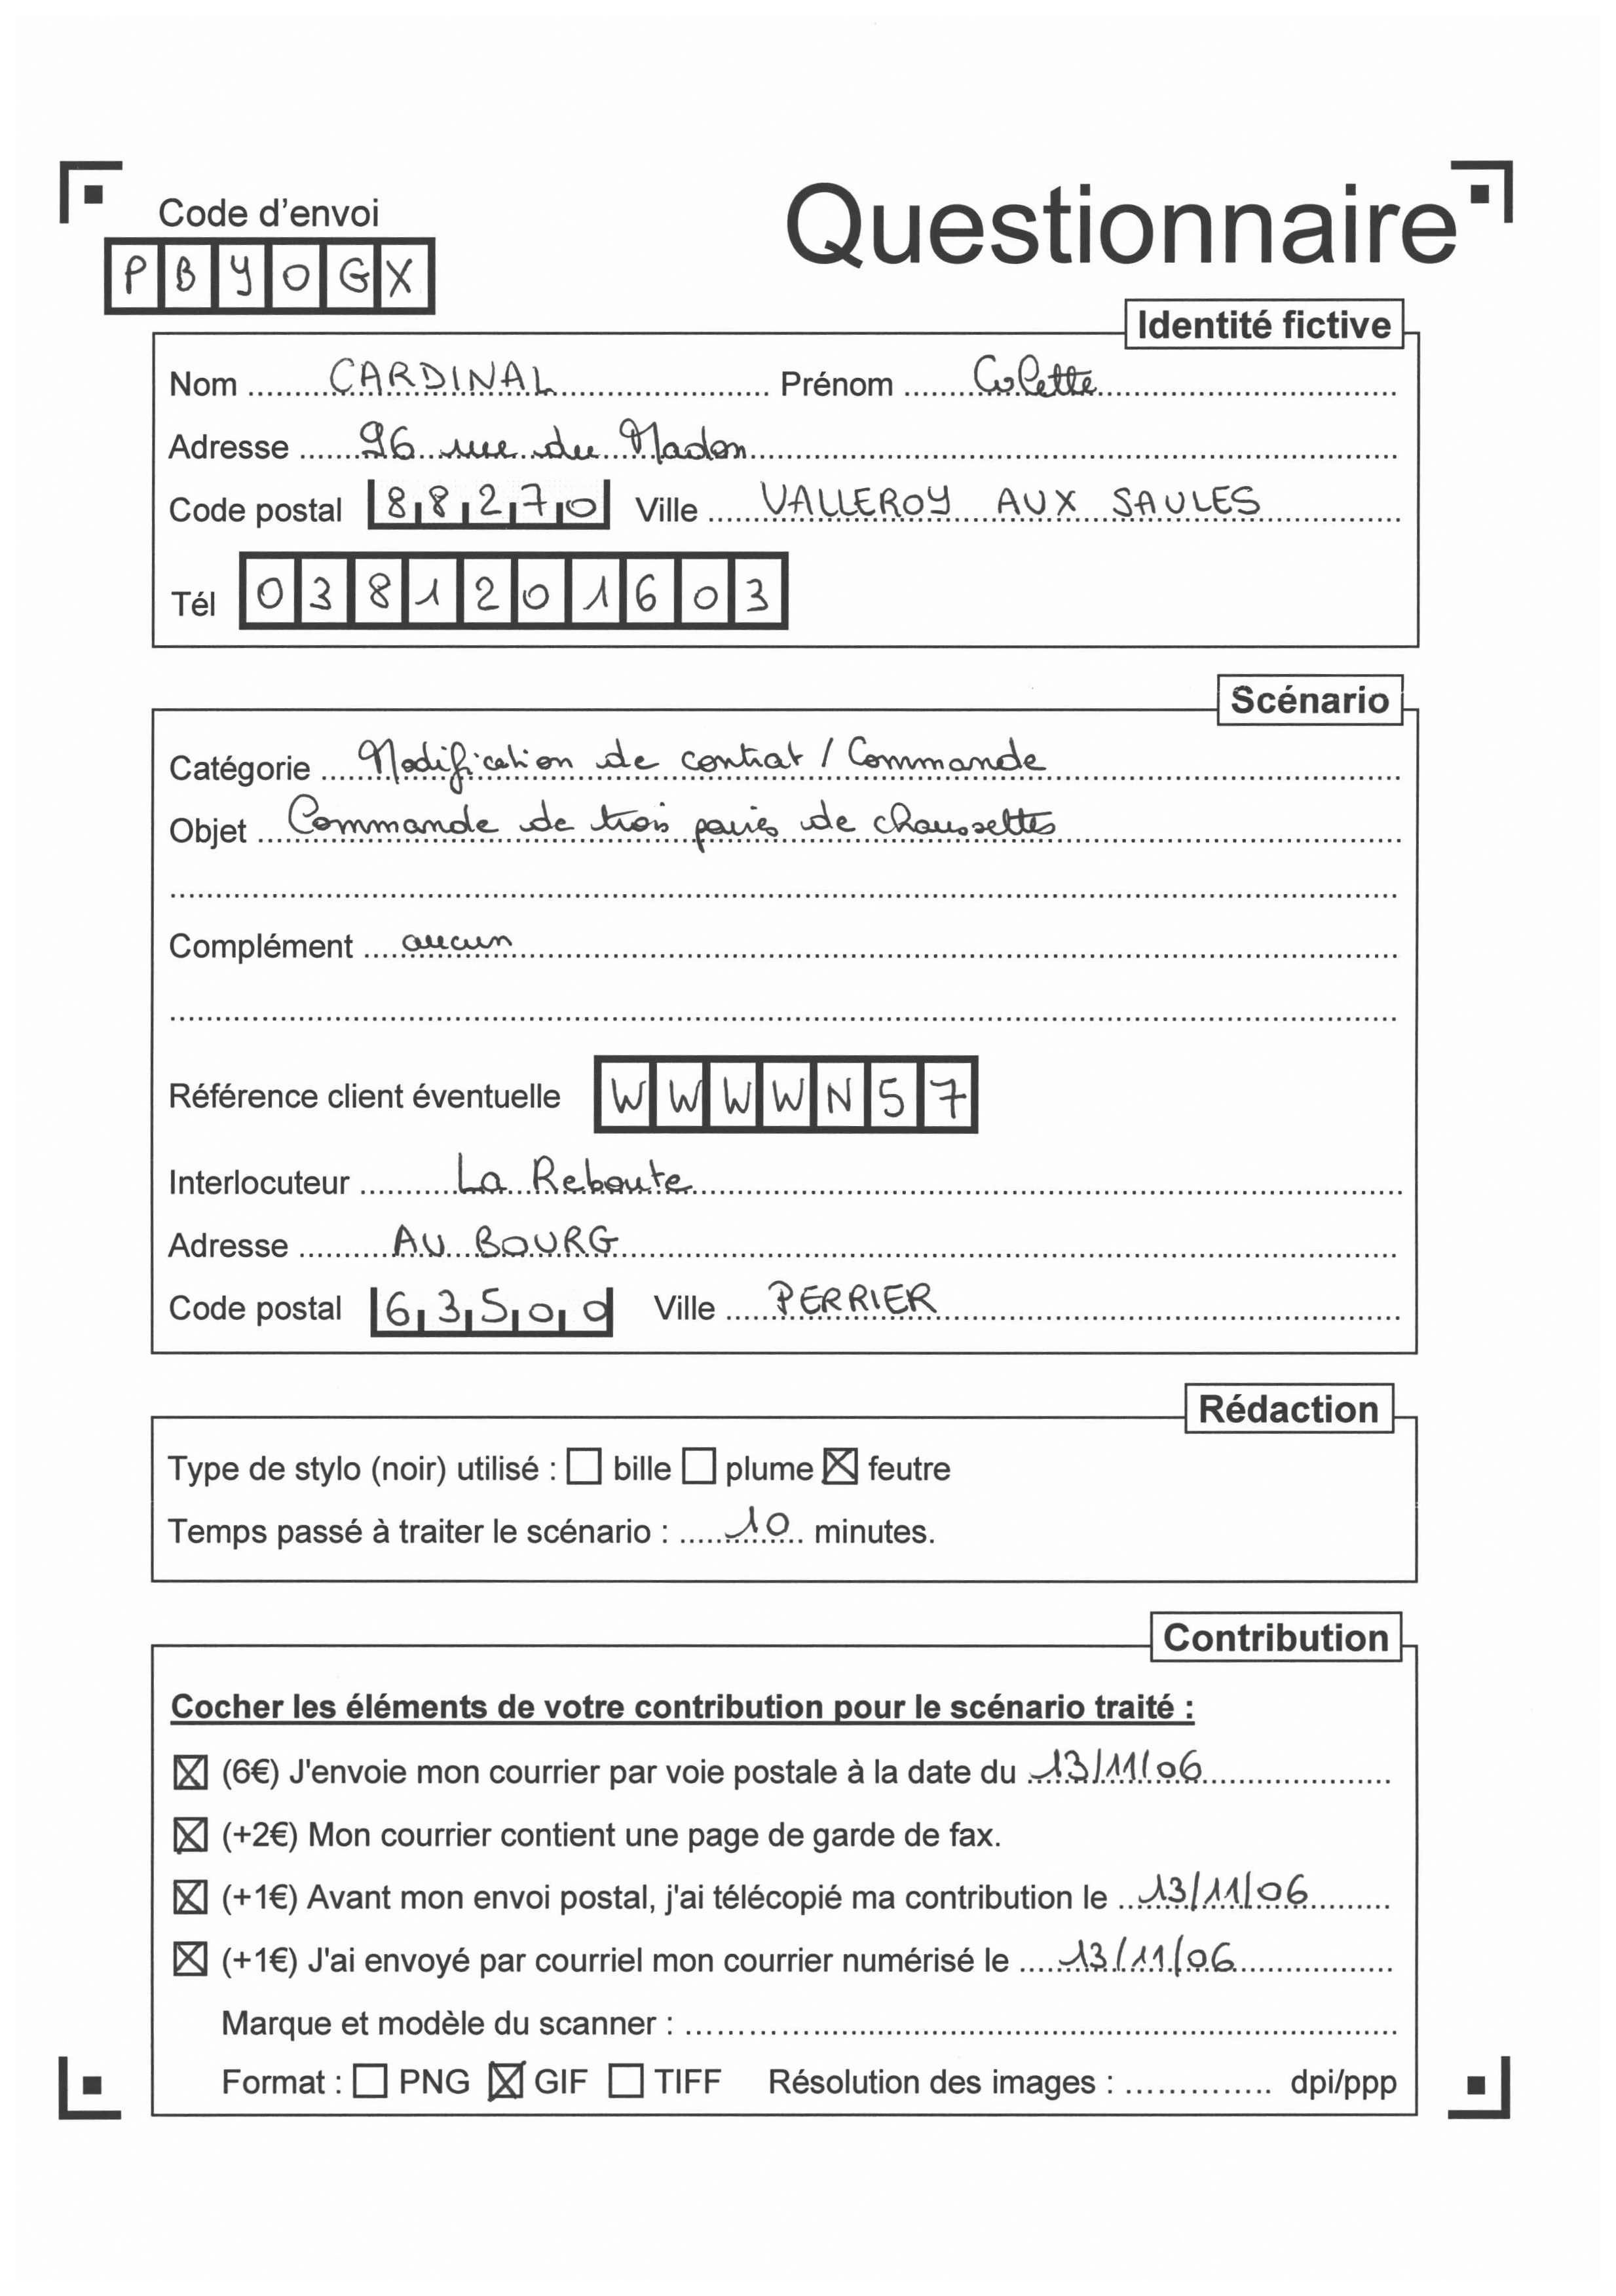 Code d'envoi
Questionnaire
PBYOGX
Identité fictive
Nom CARDINAL Prénom Colette
Adresse 96 rue du Madon
Code postal 88270 Ville VALLEROY AUX SAULES
Tél 0381201603
Scénario
Catégorie Modification de contrat / Commande
Objet Commande de trois paires de chaussettes
Complément aucun
Référence client éventuelle WWWWN57
Interlocuteur La Reboute
Adresse AU BOURG
Code postal 63500 Ville PERRIER
Rédaction
Type de stylo (noir) utilisé : ☐ bille ☐ plume ☒ feutre
Temps passé à traiter le scénario : 10 minutes.
Contribution
Cocher les éléments de votre contribution pour le scénario traité :
☒ (6€) J'envoie mon courrier par voie postale à la date du 13/11/06
☒ (+2€) Mon courrier contient une page de garde de fax.
☒ (+1€) Avant mon envoi postal, j'ai télécopié ma contribution le 13/11/06
☒ (+1€) J'ai envoyé par courriel mon courrier numérisé le 13/11/06
Marque et modèle du scanner :
Format : ☐ PNG ☒ GIF ☐ TIFF Résolution des images : dpi/ppp